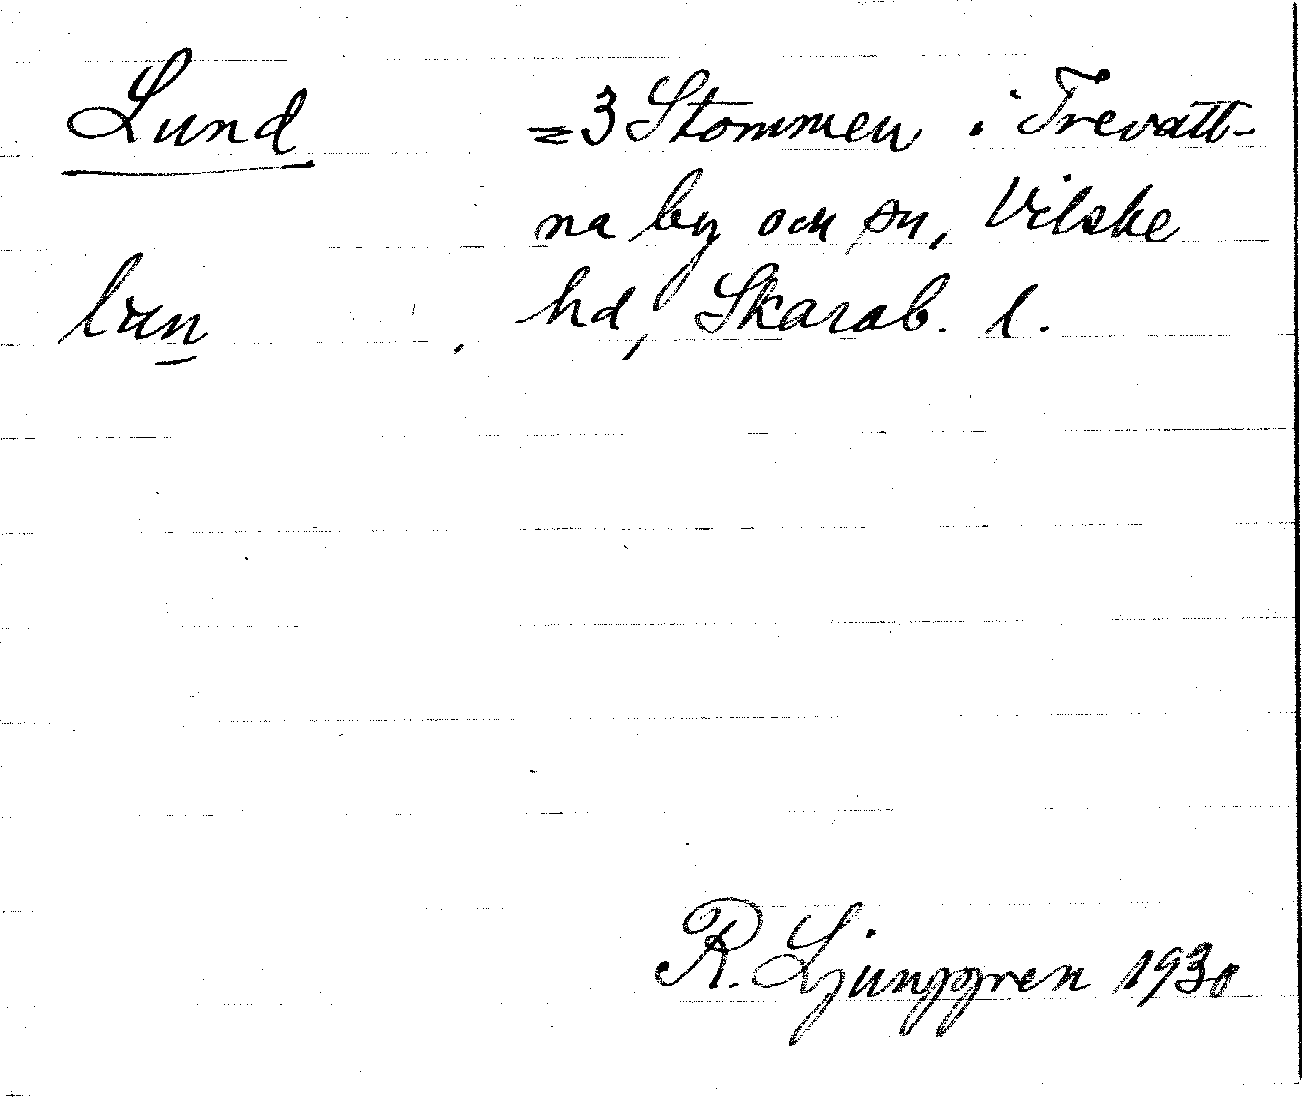 Lund = 3 Stommen i Trevatt-
na by och sn, Vilske
hd, Skarab. l.
R. Ljunggren 1930